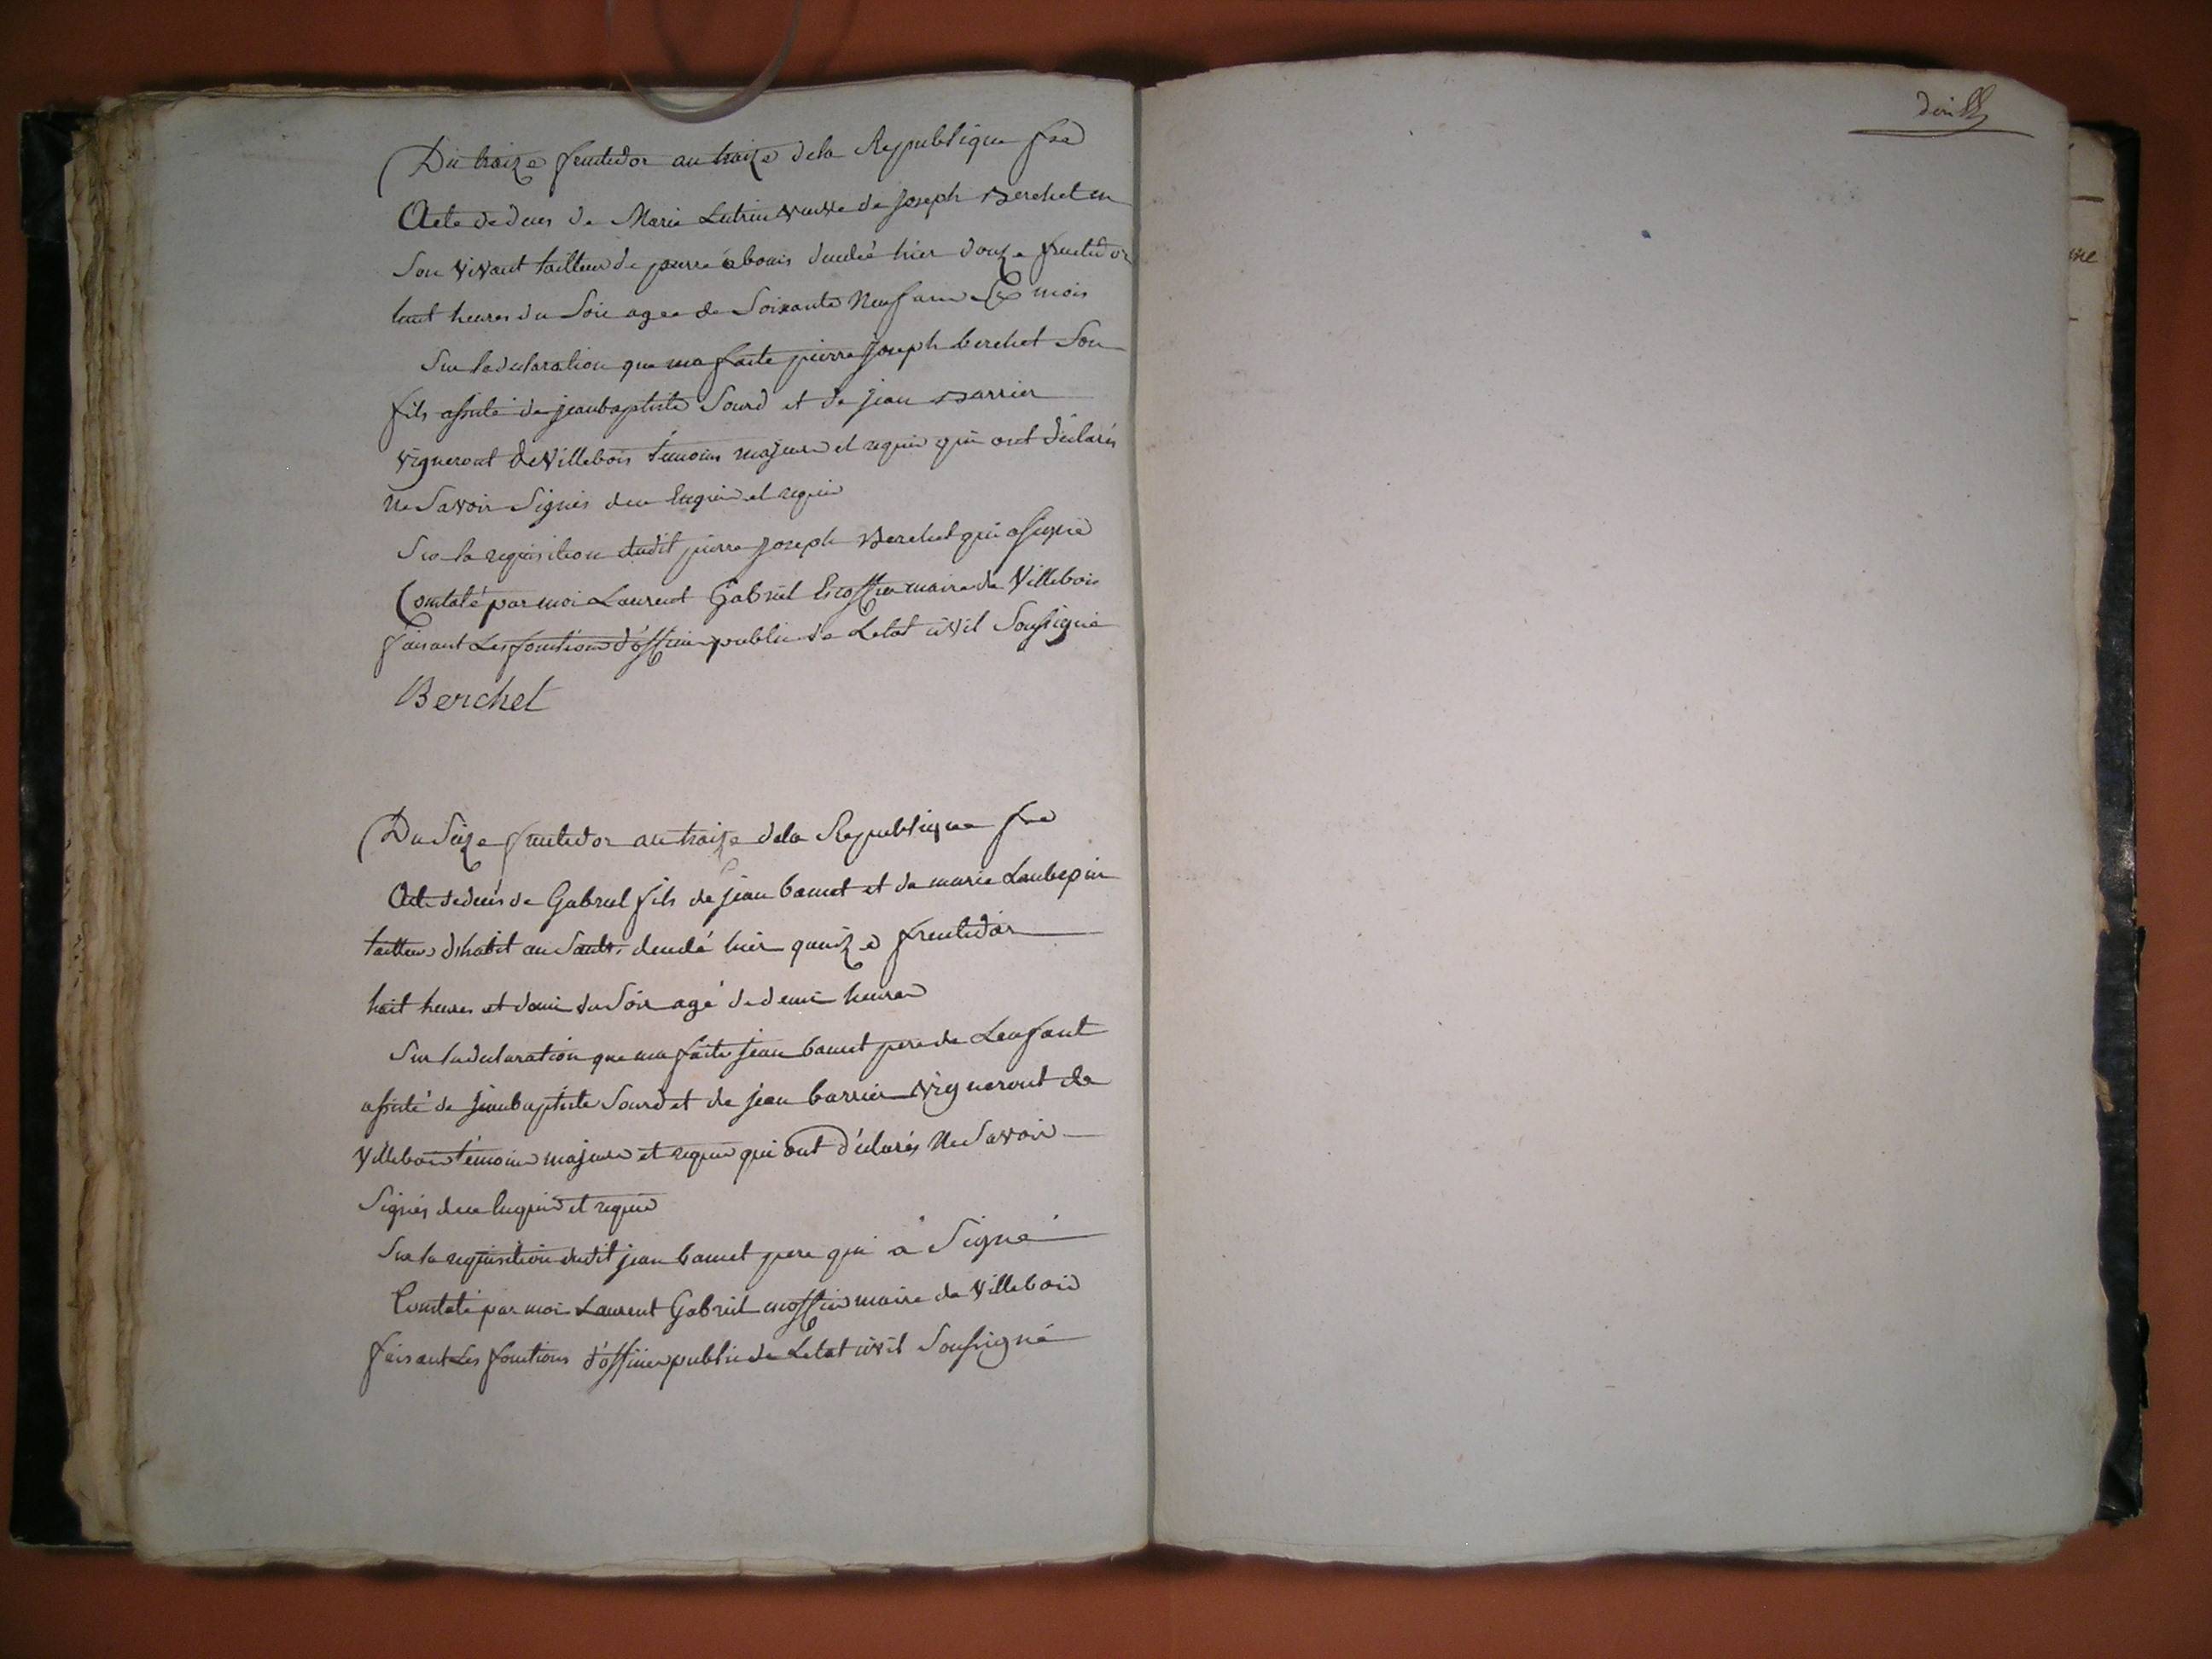 Du traize fructidor an traize dela Republique fse
Acte de deces de Marie Lutrin veuve de joseph Berchet en
Son vivant tailleur de pierre a bouis decedeé hier douze fructidor
huit heures du Soir agee de Soixante Neuf ans Six mois
Sur la declaration que ma faite pierre joseph berchet Son
fils assisté de jean baptiste Sourd et de jean Barrier
vigneront de Villebois témoins majeurs et requis qui ont déclarés
Ne Savoir Signés de ce Enquis et requis
Sur la requisition dudit pierre joseph Berchet qui a signé
Constaté par moi Laurent Gabriel Escoffier maire de Villebois
faisant Les fonctions d'officier public de Letat civil Soussigné
Berchet
Du Seize fructidor an traize dela Republique fse
Acte de deces de Gabriel fils de jean bamet et de marie Laubepin
tailleur d'habit au Sault, decedé hier quinze fructidor
huit heures et demi du Soir agé de demi heure
Sur la declaration que ma faite jean bamet pere de Lenfant
assisté de jean baptiste Sourd et de jean barrier vigneront de
Villebois témoins majeurs et requis qui ont déclarés Ne Savoir
Signés de ce Enquis et requis
Sur la requisition dudit jean bamet pere qui a Signé
Constaté par moi Laurent Gabriel escoffier maire de Villebois
faisant Les fonctions d'officier public de Letat civil Soussigné